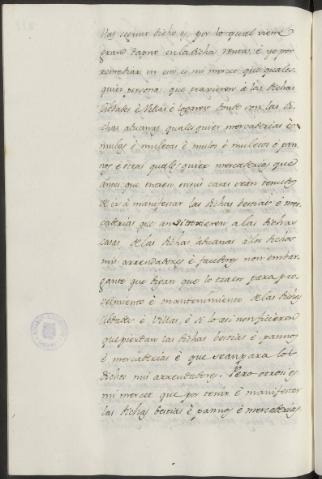 las como dicho es, por lo qual viene
gran daño en la dicha renta: è yo por
remediar en ello es mi merced que quales
quier persona que traxieren à las dichas
cibdades è Villas è logares donde son las di
chas aduanas, quales quier mercaderias è
mulas è muletas è mulos è muletos è pa
ños è otras quales quier mercaderias que
antes que entren en sus casas sean tenudos
de ir à manifestar las dichas bestias è mer
caderias que ansi troxieren à las dichas
casas de las dichas aduanas à los dichos
mis arrendadores è facedores non embar
gante que digan que lo traen para pro
veimiento è mantenimiento de las dichas
cibdades è Villas, è si lo asi non ficieren
que pierdan las dichas bestias è paños
è mercaderias è que sean para los
dichos mis arrendadores. Pero otrosi es
mi merced que por venir è manifestar
las dichas bestias è paños è mercaderias